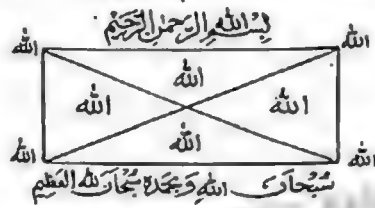 بِسْمِ اللهِ الرَّحْمٰنِ الرَّحِيْمِ
الله الله
الله
الله الله
الله
الله الله
سُبْحَانَ اللهِ وَبِحَمْدِهٖ سُبْحَانَ اللهِ الْعَظِيْمِ